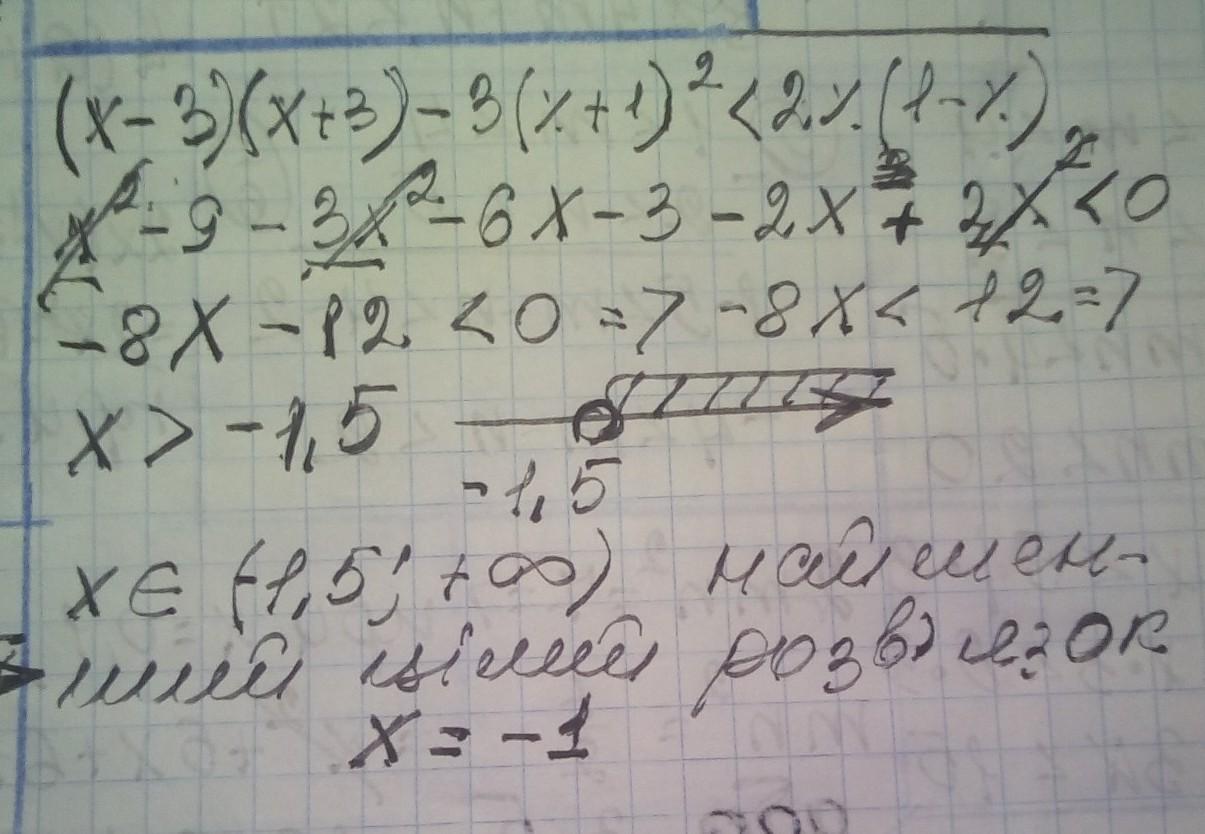 (x-3)(x+3)-3(x+1)²<2x(1-x)
x²-9-3x²-6x-3-2x+2x²<0
-8x-12<0=>-8x<12=>
x>-1,5
-1,5
x∈(-1,5;+∞) наймен-
ший цілий розв'язок
x=-1